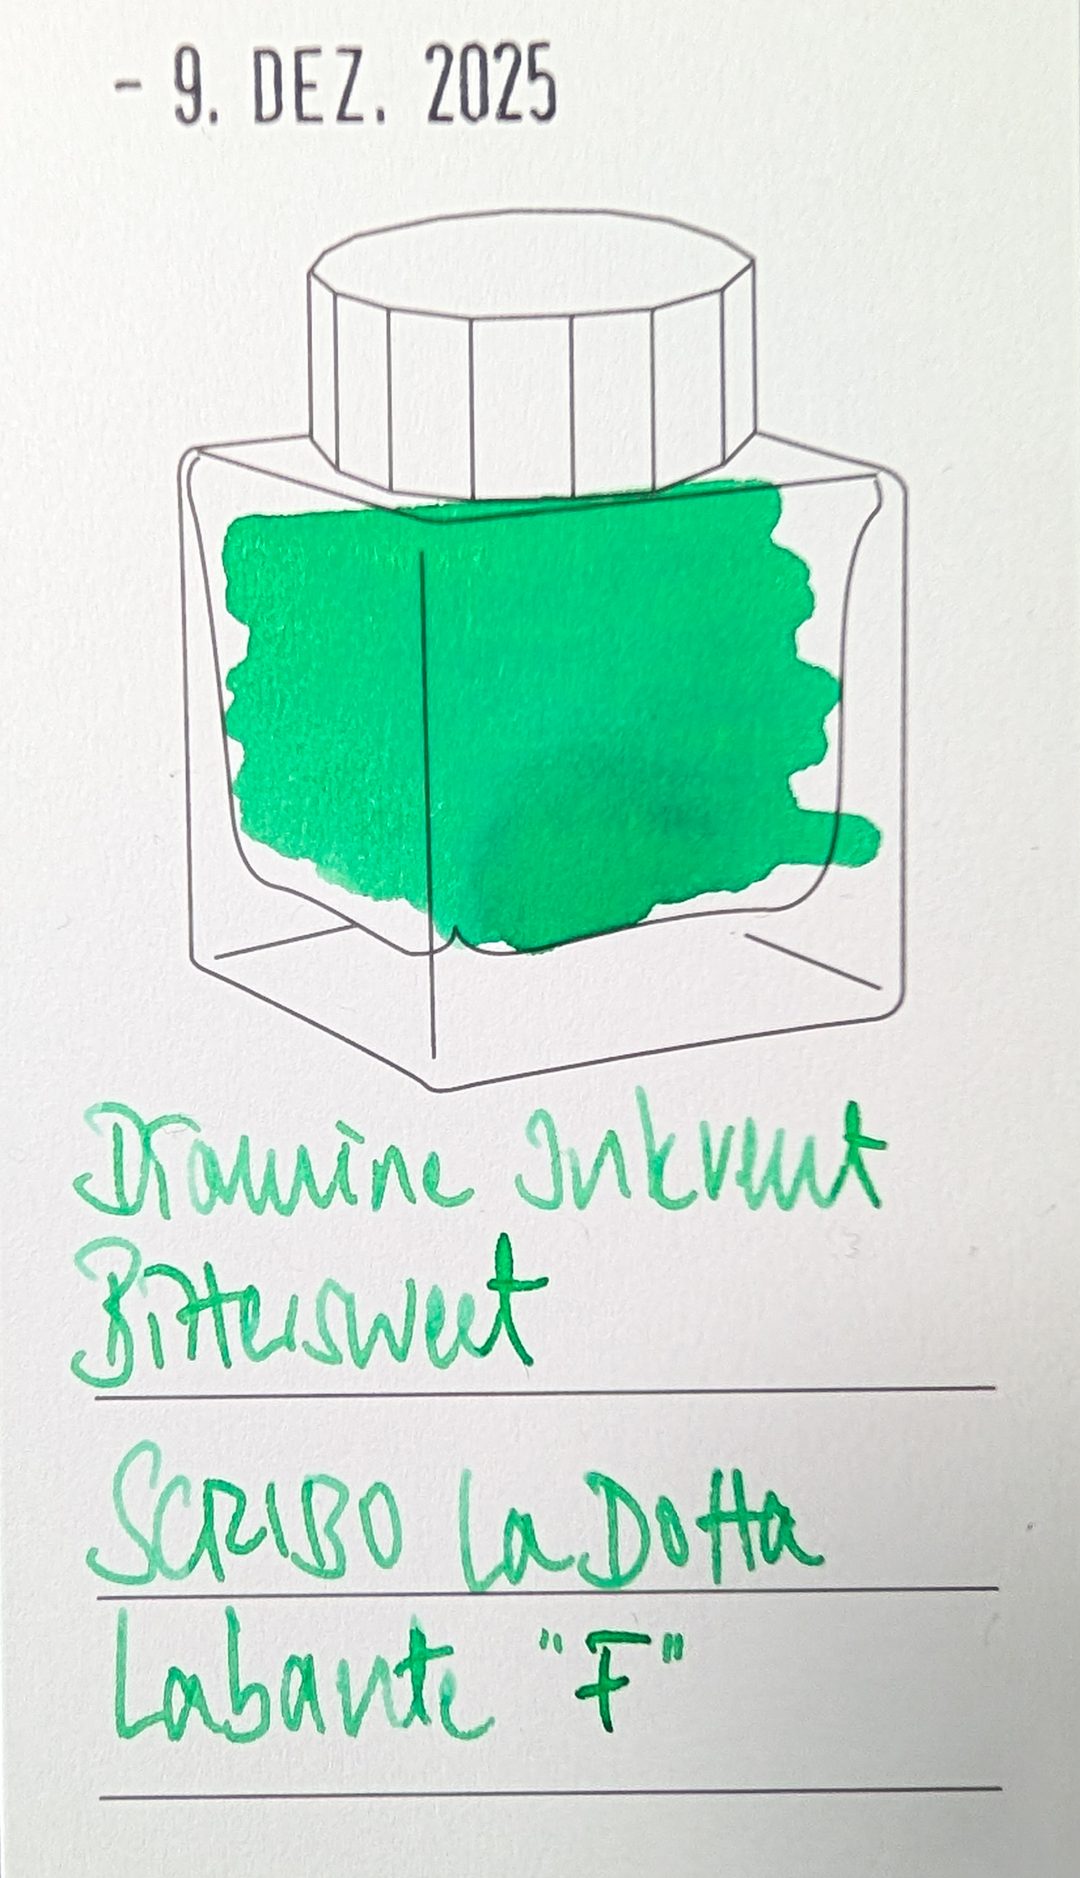 - 9. DEZ. 2025
Diamine Inkvent
Bittersweet
SCRIBO La Dotta
Labante "F"